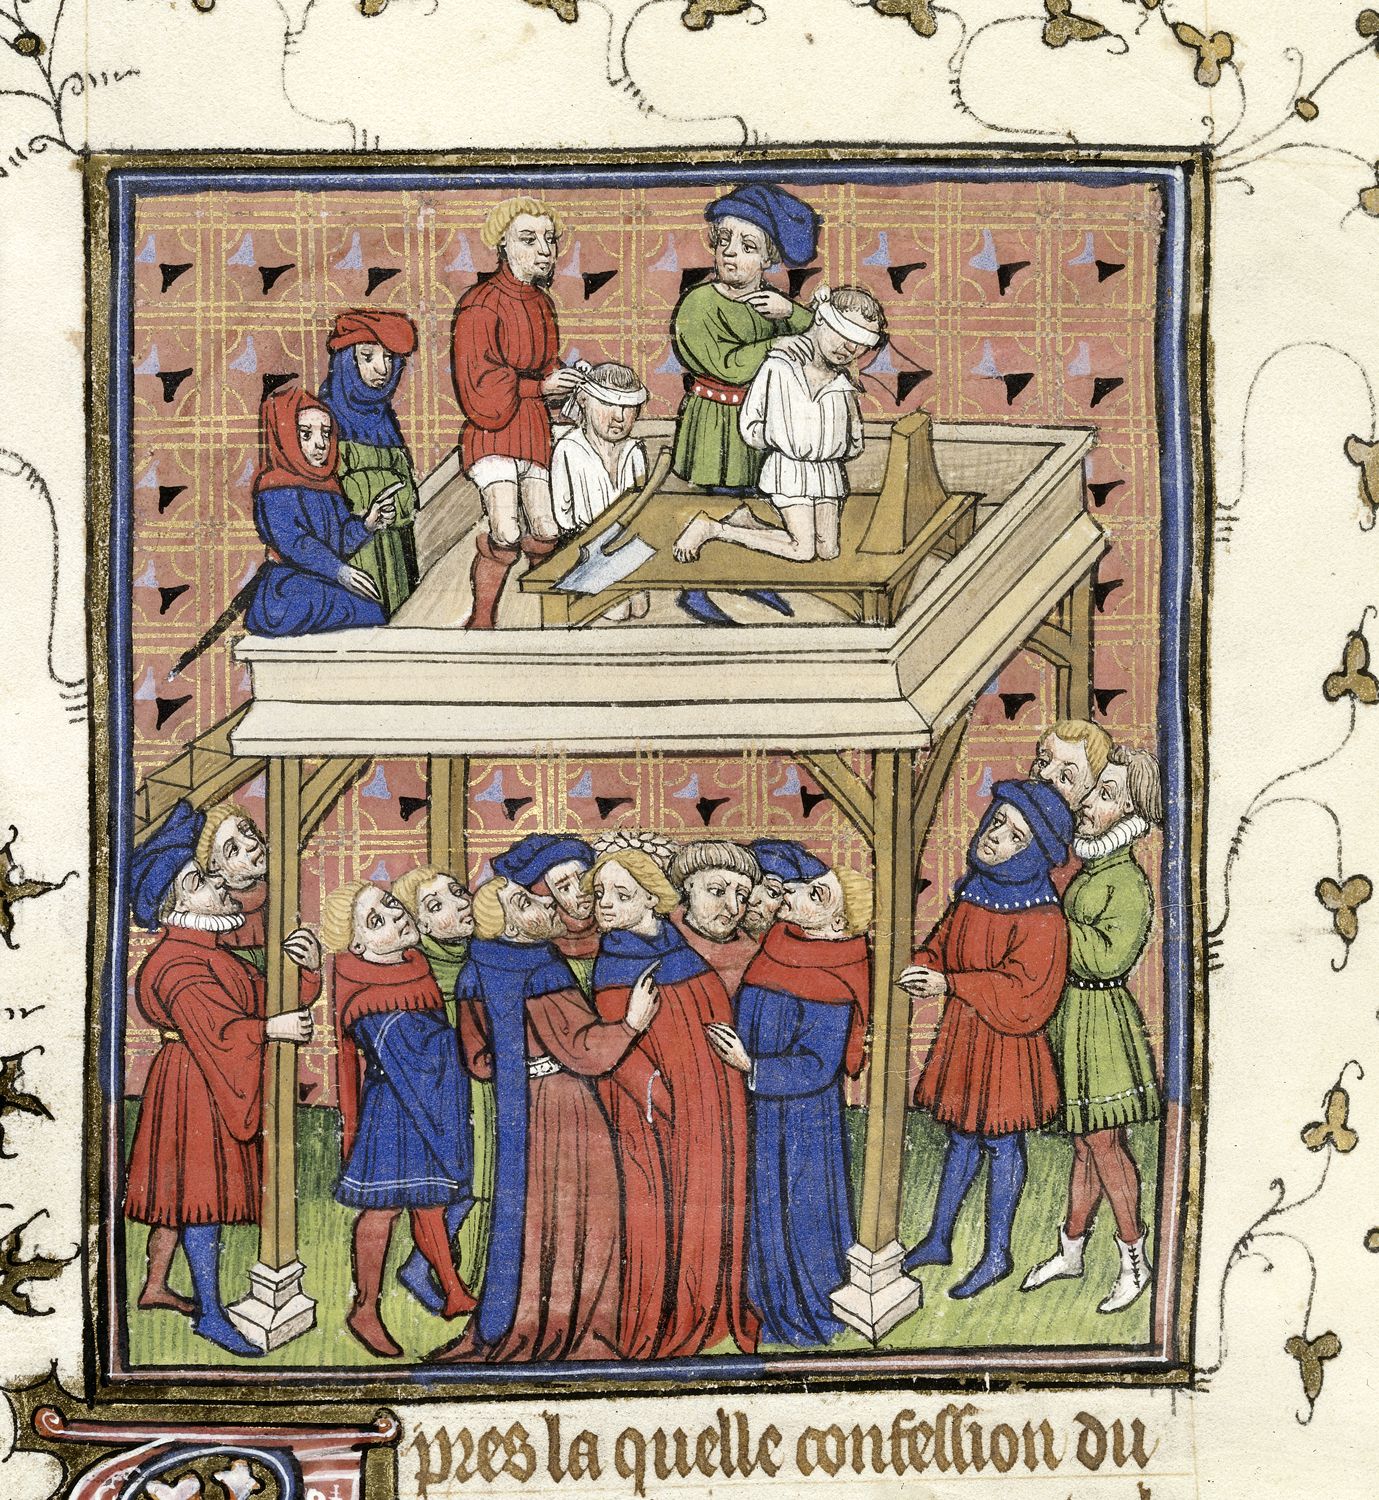 pres la quelle confession du